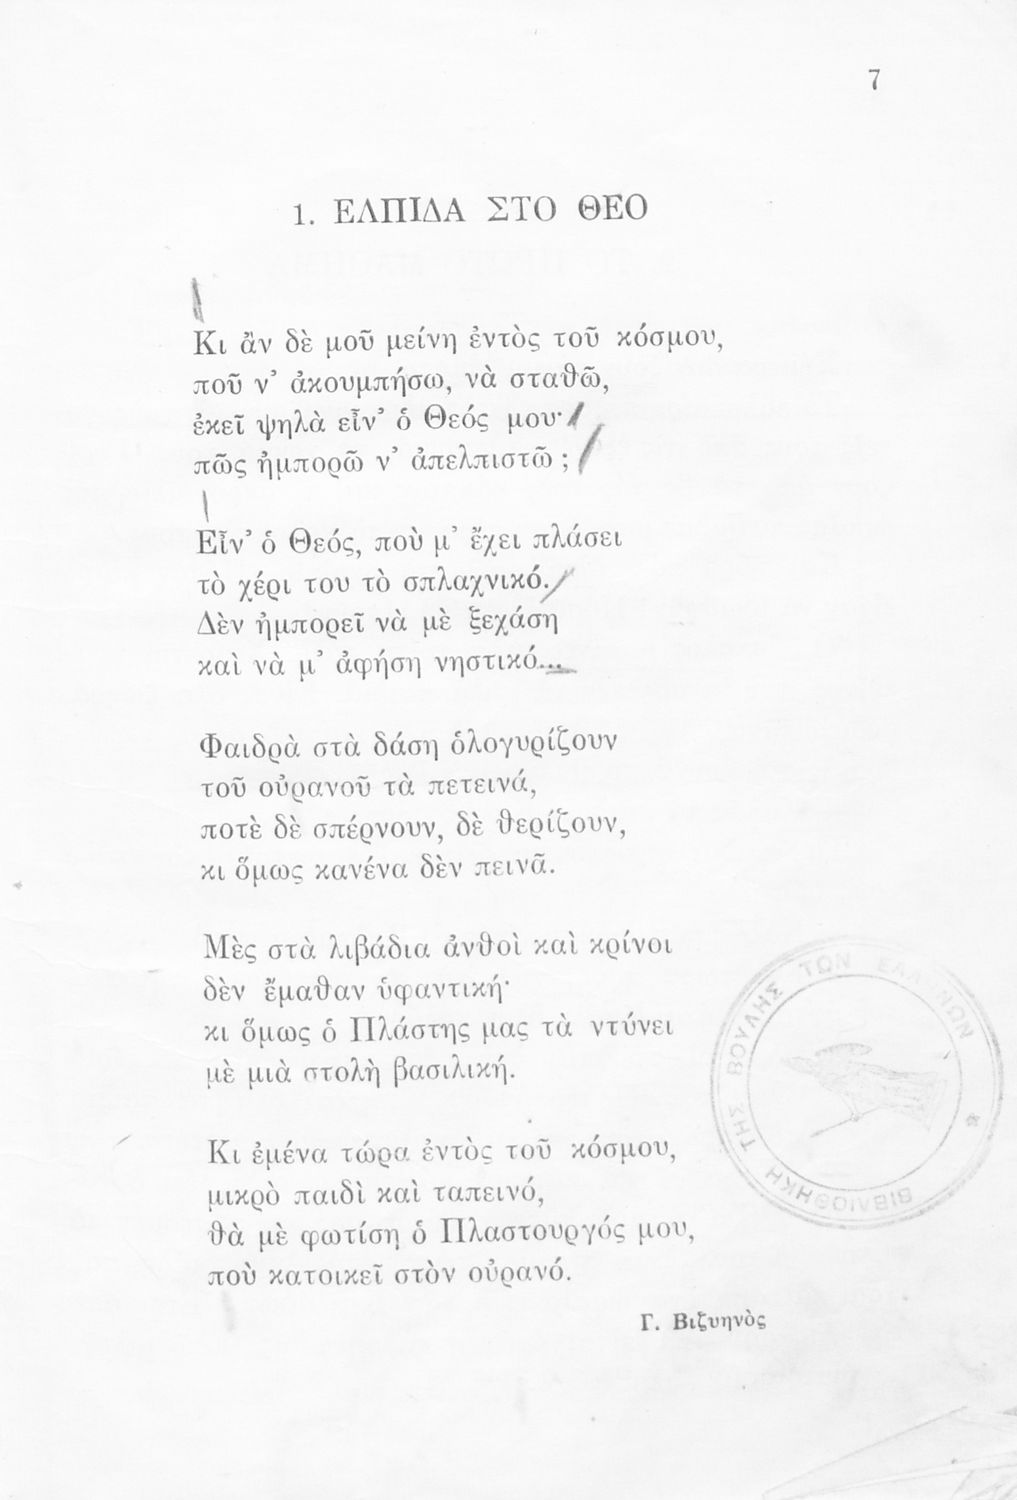 7
1. ΕΛΠΙΔΑ ΣΤΟ ΘΕΟ
Κι ἂν δὲ μοῦ μείνη ἐντὸς τοῦ κόσμου,
ποῦ ν’ ἀκουμπήσω, νὰ σταθῶ,
ἐκεῖ ψηλὰ εἶν’ ὁ Θεός μου·
πῶς ἠμπορῶ ν’ ἀπελπιστῶ ;
Εἶν’ ὁ Θεός, ποὺ μ’ ἔχει πλάσει
τὸ χέρι του τὸ σπλαχνικό.
Δὲν ἠμπορεῖ νὰ μὲ ξεχάση
καὶ νὰ μ’ ἀφήση νηστικό...
Φαιδρὰ στὰ δάση ὁλογυρίζουν
τοῦ οὐρανοῦ τὰ πετεινά,
ποτὲ δὲ σπέρνουν, δὲ θερίζουν,
κι ὅμως κανένα δὲν πεινᾶ.
Μὲς στὰ λιβάδια ἀνθοὶ καὶ κρίνοι
δὲν ἔμαθαν ὑφαντική·
κι ὅμως ὁ Πλάστης μας τὰ ντύνει
μὲ μιὰ στολὴ βασιλική.
Κι ἐμένα τώρα ἐντὸς τοῦ κόσμου,
μικρὸ παιδὶ καὶ ταπεινό,
θὰ μὲ φωτίση ὁ Πλαστουργός μου,
ποὺ κατοικεῖ στὸν οὐρανό.
Γ. Βιζυηνὸς
ΒΙΒΛΙΟΘΗΚΗ ΤΗΣ ΒΟΥΛΗΣ ΤΩΝ ΕΛΛΗΝΩΝ